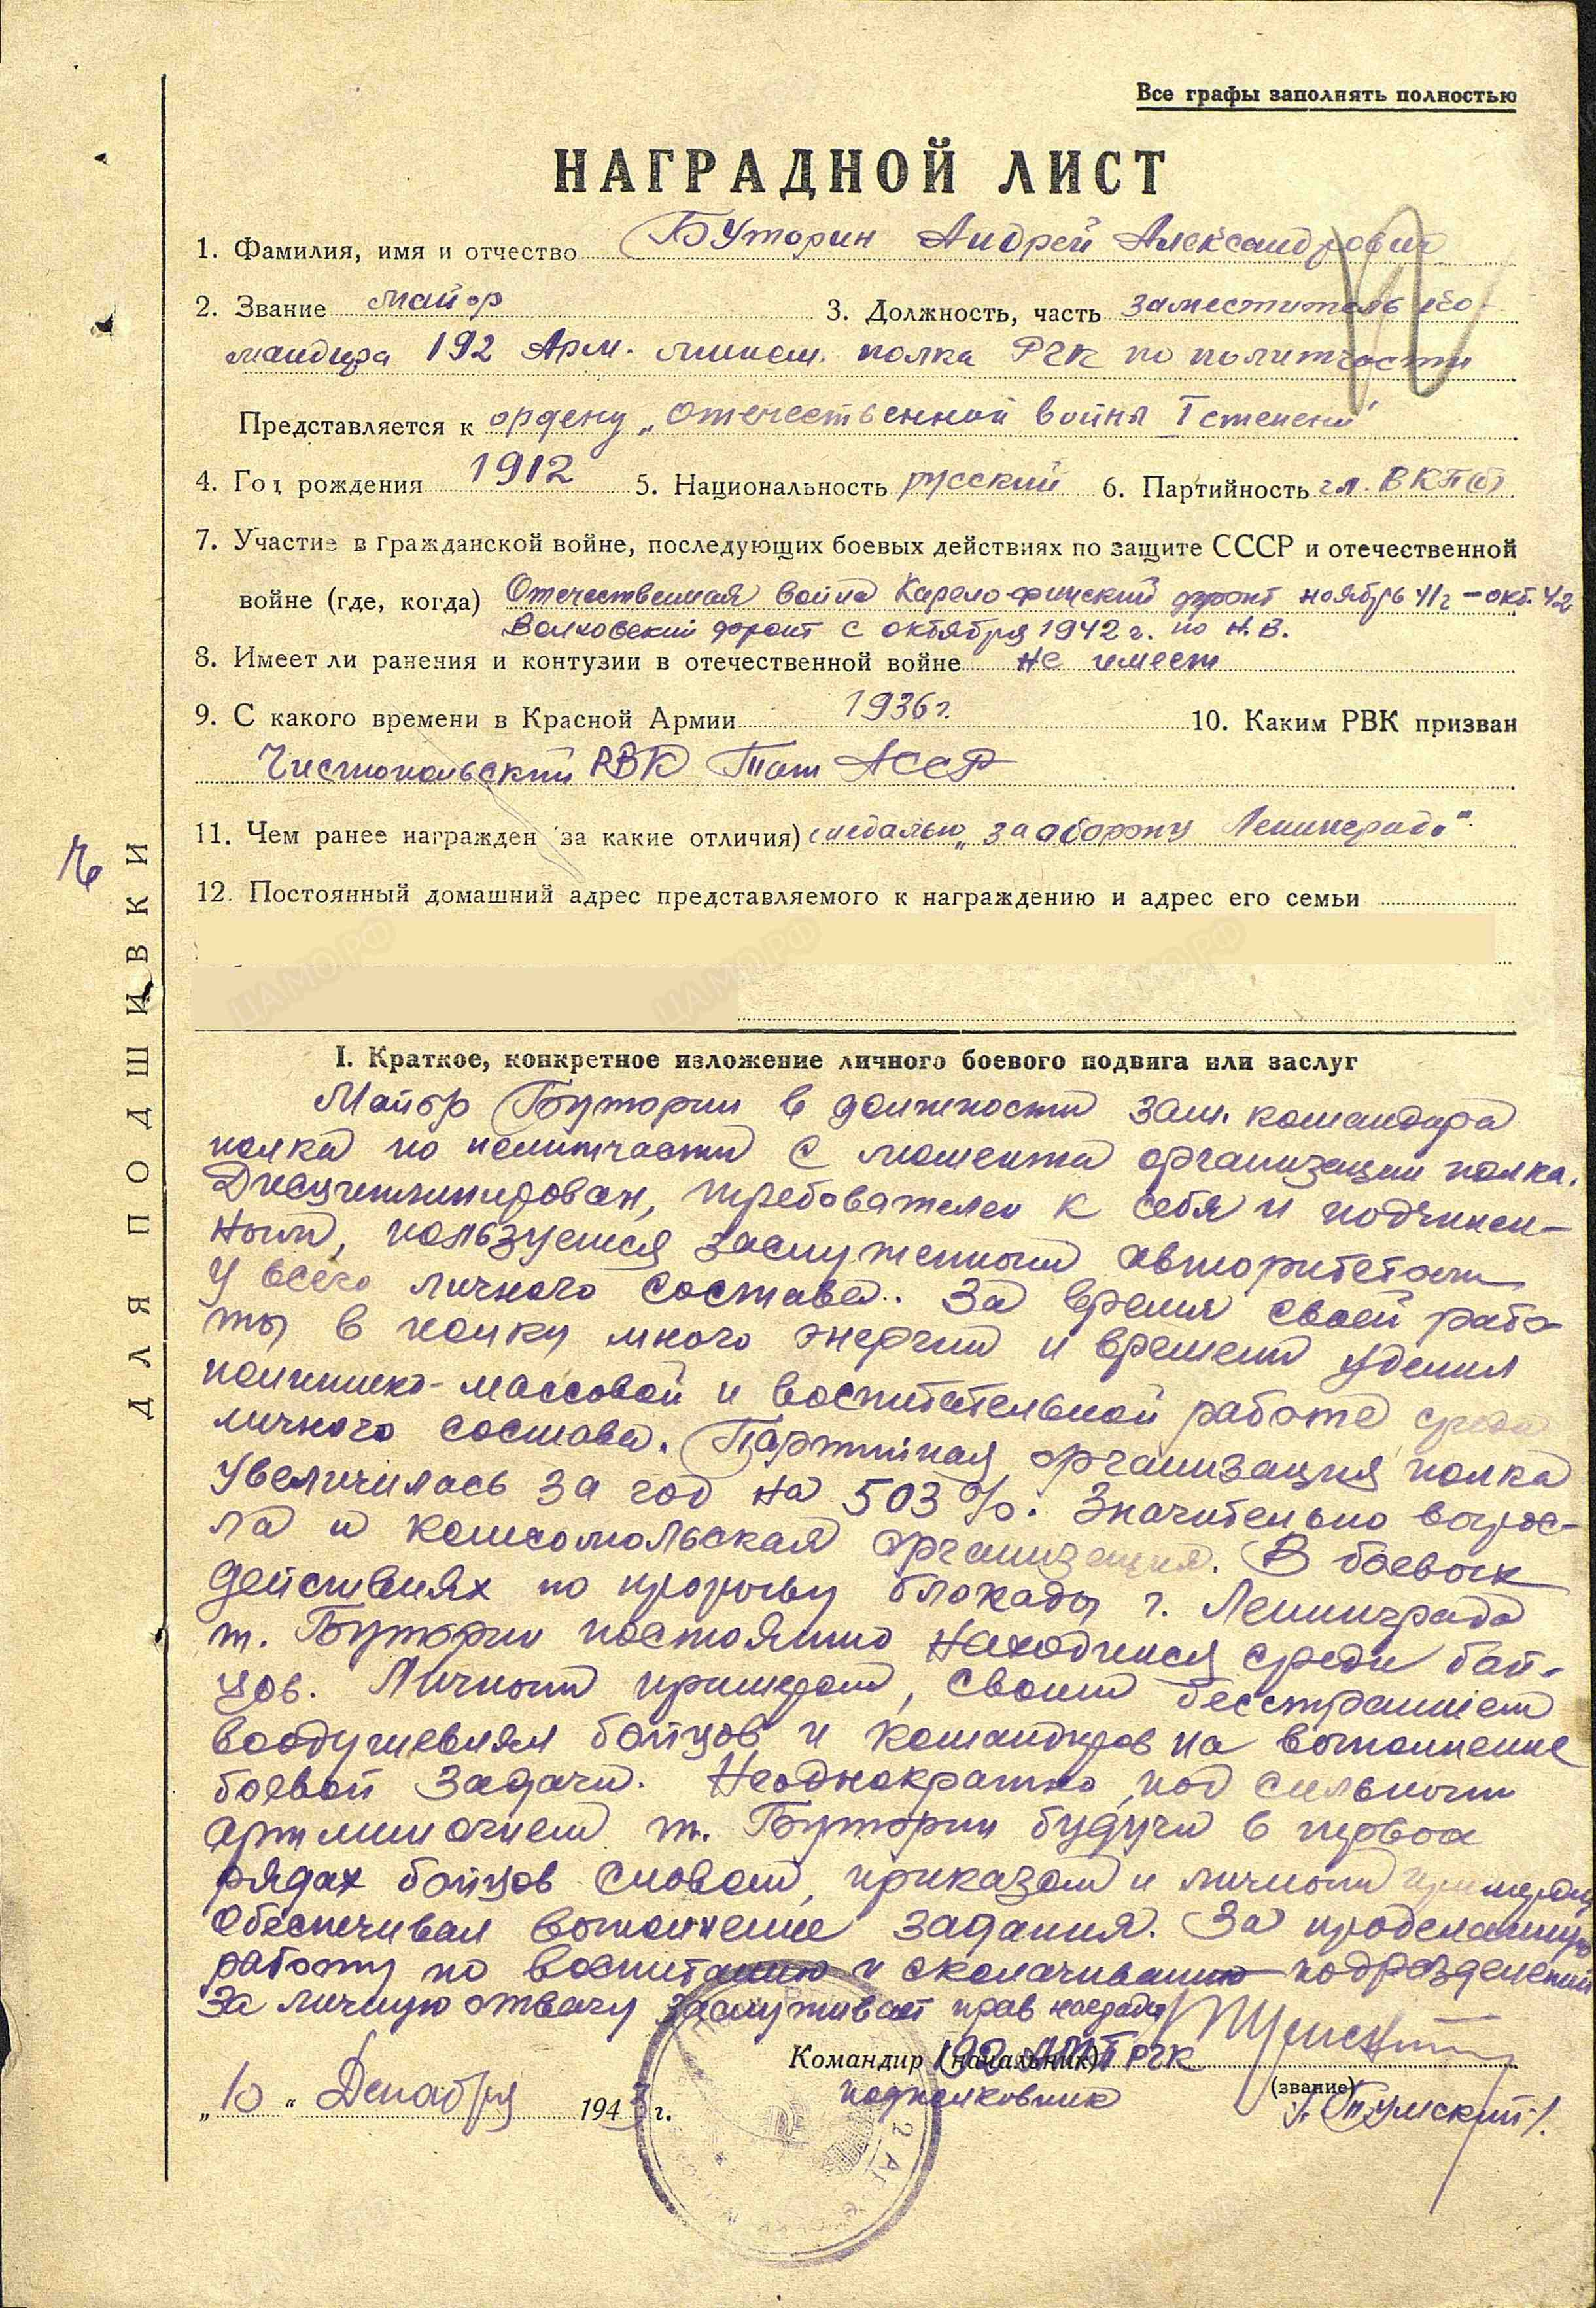 Все графы заполнять полностью
НАГРАДНОЙ ЛИСТ
1. Фамилия, имя и отчество Буторин Андрей Александрович
2. Звание майор 3. Должность, часть заместитель ко-
мандира 192 Арм. мином. полка РГК по политчасти
Представляется к ордену „Отечественной войны I степени"
4. Год рождения 1912 5. Национальность русский 6. Партийность чл. ВКП(б)
7. Участие в гражданской войне, последующих боевых действиях по защите СССР и отечественной
войне (где, когда) Отечественная война Карелофинский фронт ноябрь 41г – окт. 42
Волховский фронт с октября 1942 г. по н.в.
8. Имеет ли ранения и контузии в отечественной войне не имеет
9. С какого времени в Красной Армии 1936 г. 10. Каким РВК призван
Чистопольский РВК Тат АССР
11. Чем ранее награжден за какие отличия) медалью „За оборону Ленинграда"
12. Постоянный домашний адрес представляемого к награждению и адрес его семьи
ДЛЯ ПОДШИВКИ
I. Краткое, конкретное изложение личного боевого подвига или заслуг
Майор Буторин в должности зам. командира
полка по политчасти с момента организации полка.
Дисциплинирован, требователен к себя и подчинен-
ным, пользуется заслуженным авторитетом
у всего личного состава. За время своей рабо
ты в полку много энергии и времени уделил
политико-массовой и воспитательной работе среди
личного состава. Партийная организация полка
увеличилась за год на 503%. Значительно вырос-
ла и комсомольская организация. В боевых
действиях по прорыву блокады г. Ленинграда
т. Буторин постоянно находился среди бой-
цов. Личным примером, своим бесстрашием
воодушевлял бойцов и командиров на выполнение
боевой задачи. Неоднократно под сильным
арт мин огнем т. Буторин будучи в первых
рядах бойцов словом, приказом и личным примером
обеспечивал выполнение задания. За проделанную
работу по воспитанию и сколачиванию подразделений
за личную отвагу заслуживает прав награды
Командир (начальник) 192 АМП РГК
подполковник (звание)
„10" Декабря 1943 г.